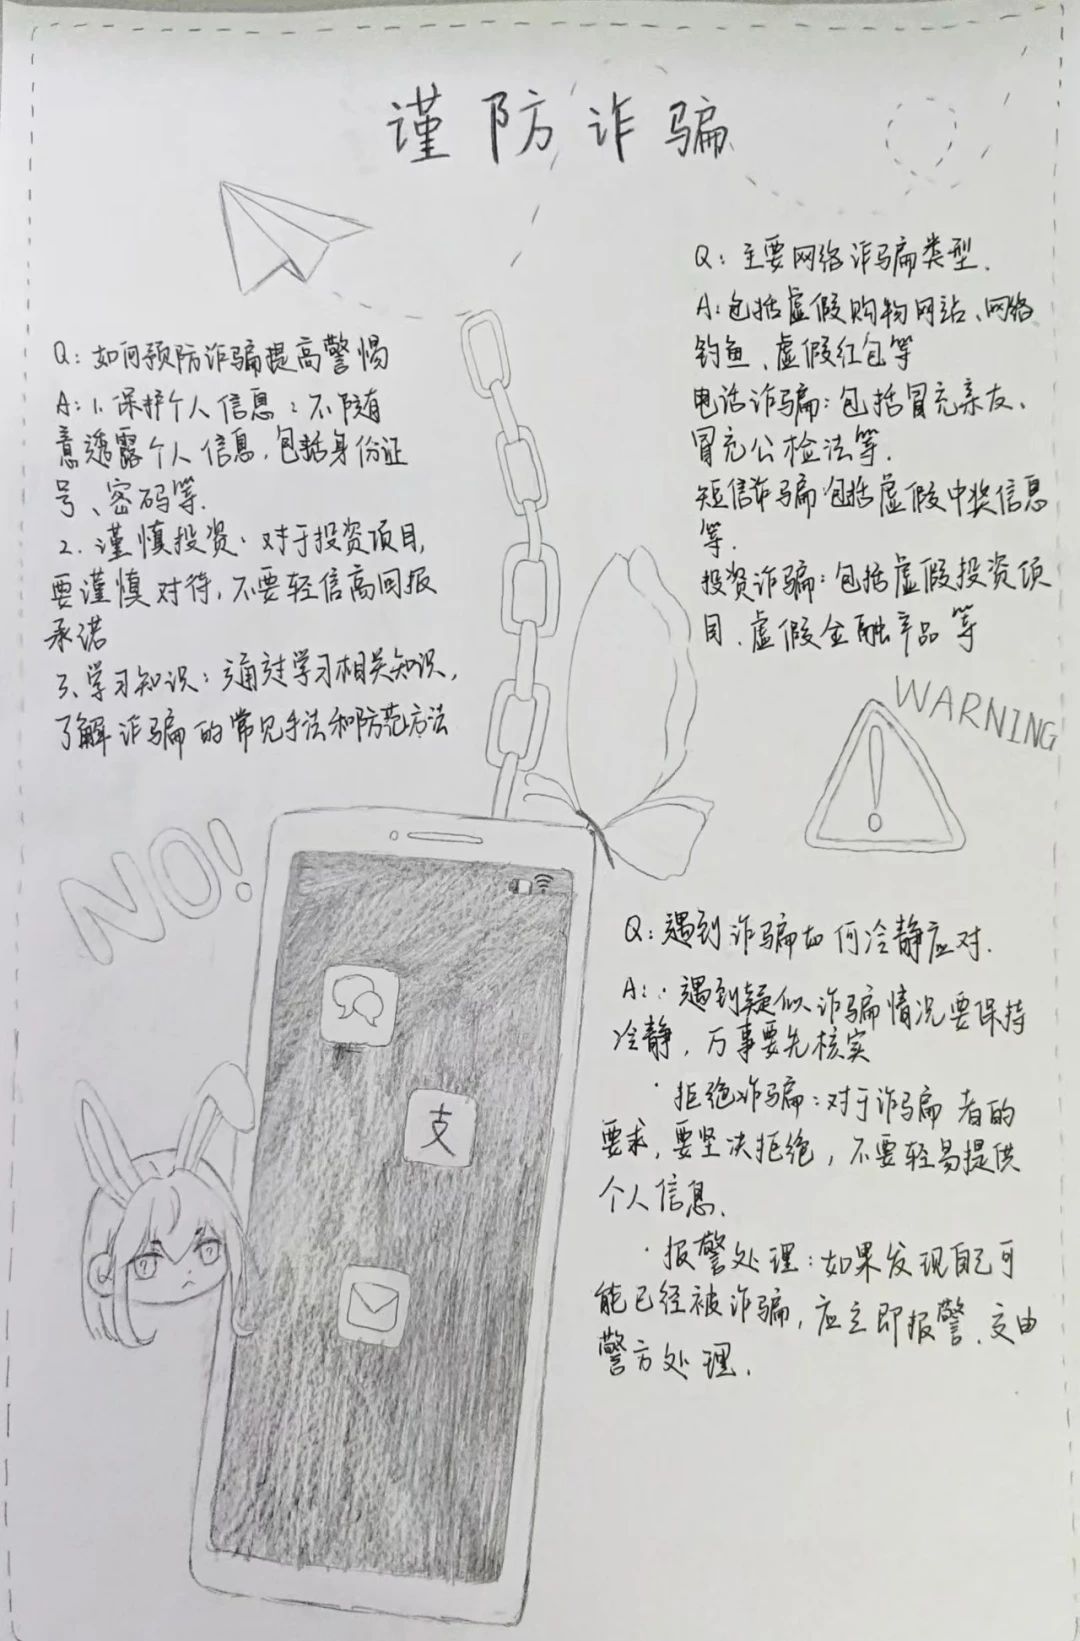 谨防诈骗
Q：如何预防诈骗提高警惕
A：1、保护个人信息：不随
意透露个人信息，包括身份证
号、密码等.
2. 谨慎投资：对于投资项目，
要谨慎对待，不要轻信高回报
承诺
3、学习知识：通过学习相关知识，
了解诈骗的常见手法和防范方法
Q：主要网络诈骗类型.
A：包括虚假购物网站、网络
钓鱼、虚假红包等
电话诈骗：包括冒充亲友、
冒充公检法等.
短信诈骗：包括虚假中奖信息
等.
投资诈骗：包括虚假投资项
目、虚假金融产品等
WARNING
NO!
支
Q：遇到诈骗如何冷静应对.
A：·遇到疑似诈骗情况要保持
冷静，万事要先核实
·拒绝诈骗：对于诈骗者的
要求，要坚决拒绝，不要轻易提供
个人信息.
·报警处理：如果发现自己可
能已经被诈骗，应立即报警、交由
警方处理.